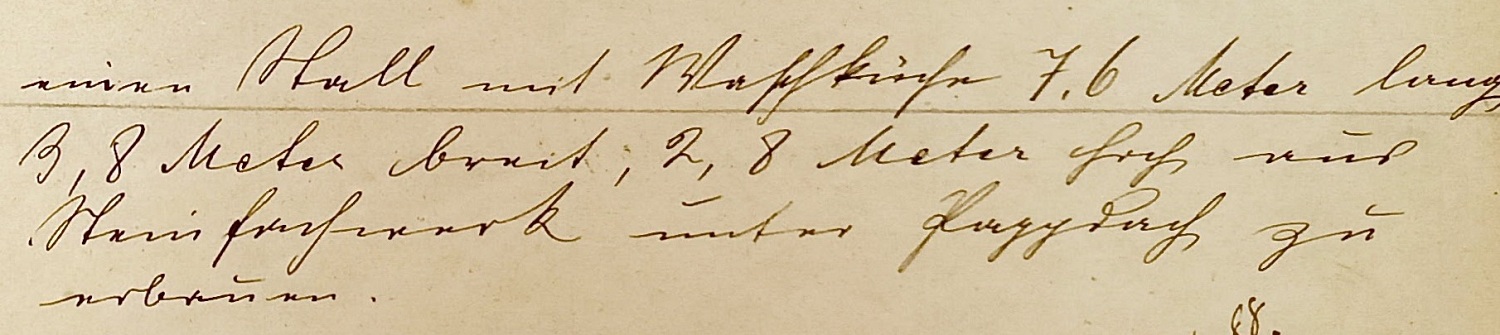 einen Stall mit Waschküche 7,6 Meter lang,
3,8 Meter breit, 2,8 Meter hoch aus
Steinfachwerk unter Pappdach zu
erbauen.
88.